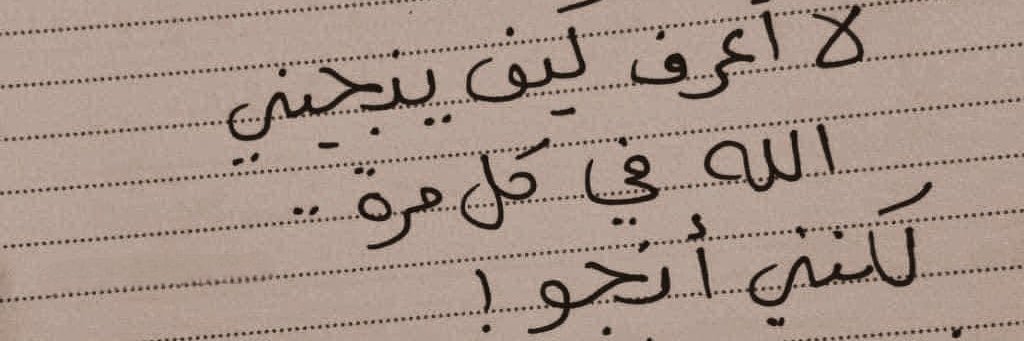 لا أعرف كيف ينجيني
الله في كل مرة ..
لكنني أنجو !